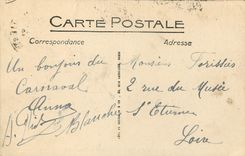 CARTE POSTALE
Correspondance
Adresse
Un bonjour du
Carnaval
Anna
Blanche
Monsieur
2 rue du Musée
St Etienne
Loire